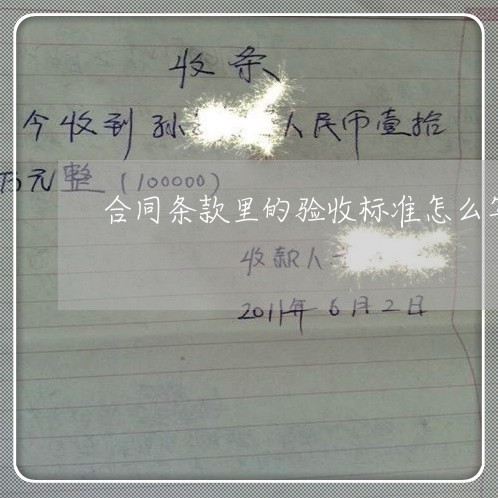 收条
今收到孙 人民币壹拾
万元整(100000)
合同条款里的验收标准怎么
收款人
2011年6月2日